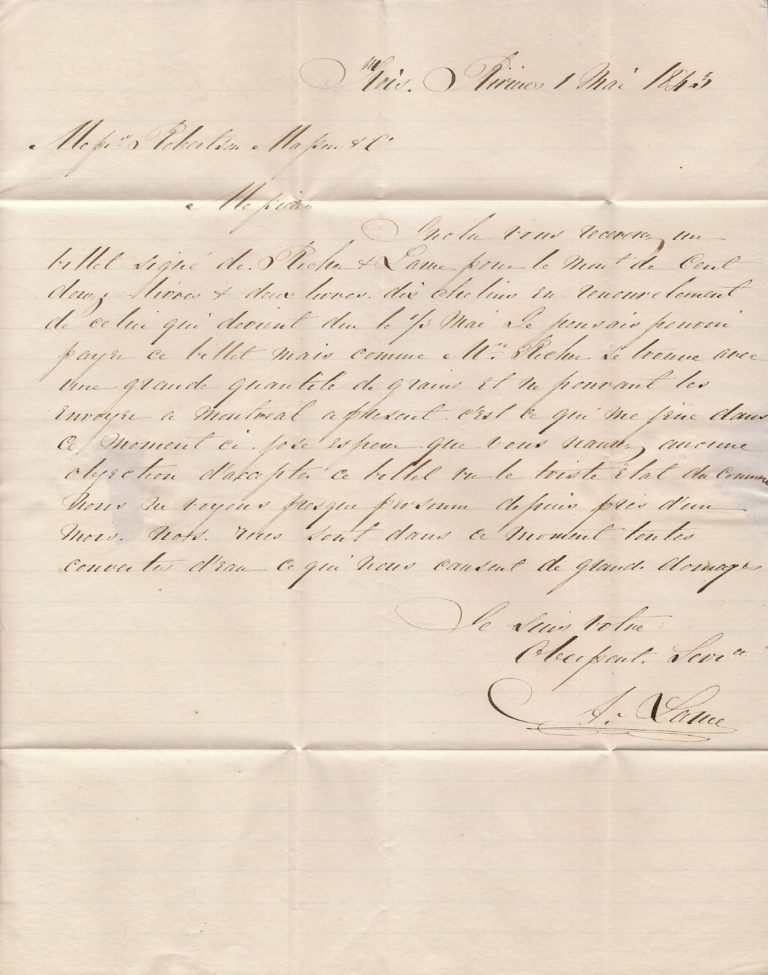 Trois. Rivières 1 Mai 1843
Messrs Robertson Masson & Co
Messieurs
Inclu vous recevrez un
billet signé de Richer & Lame pour le mont de Cent
douze livres & deux livres dix chelins en renouvelement
de celui qui devient du le 1/3 Mai Je pensais pouvoir
payer ce billet mais comme Mr Richer se trouve avec
une grande quantité de grains et ne pouvant les
envoyer a Montreal apresent. c'est ce qui me gêne dans
ce moment ci. jose espérer que vous naurez aucune
objection d'accepter ce billet vu le triste état du Commerce
Nous ne voyons presque personne depuis près d'un
Mois. nos. rues sont dans ce moment toutes
couvertes d'eau ce qui nous causent de grande domages
Je suis votre
Obeissent. Servr
A. Lame